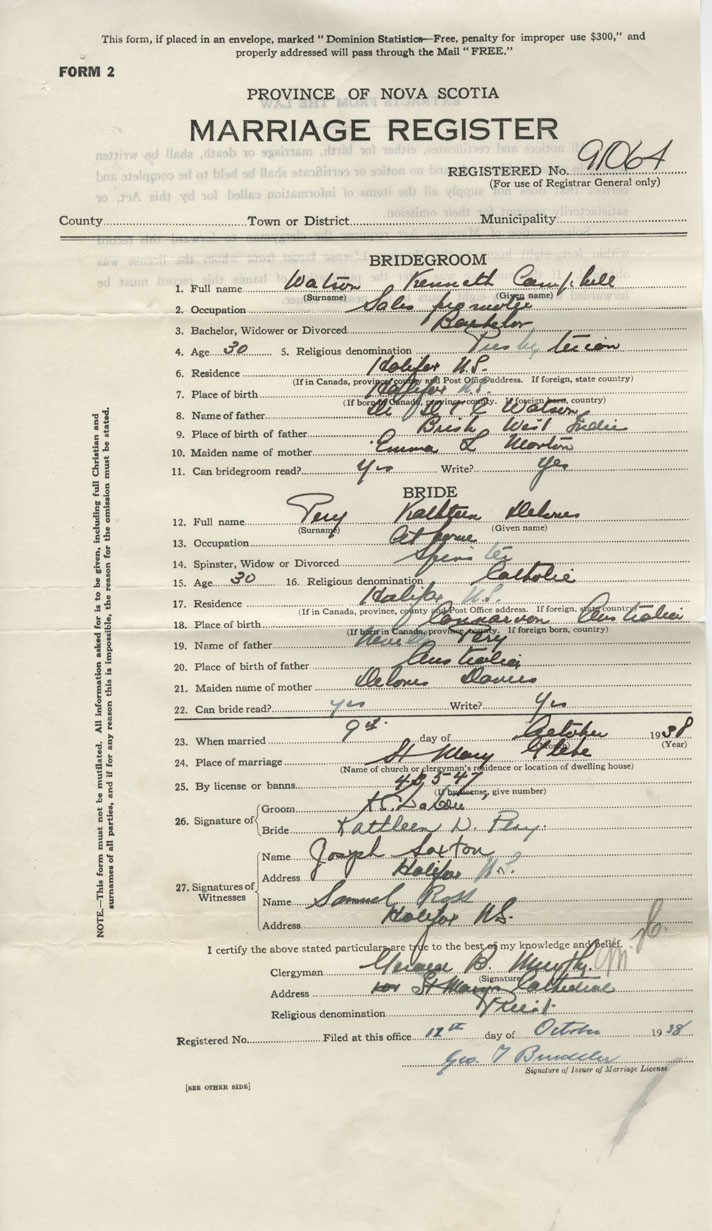 This form, if placed in an envelope, marked "Dominion Statistics—Free, penalty for improper use $300," and
properly addressed will pass through the Mail "FREE."
FORM 2
PROVINCE OF NOVA SCOTIA
MARRIAGE REGISTER
REGISTERED No. 91064
(For use of Registrar General only)
County Town or District Municipality
BRIDEGROOM
1. Full name Watson Kenneth Campbell
(Surname) (Given name)
2. Occupation Sales promoter
3. Bachelor, Widower or Divorced Bachelor
4. Age 30 5. Religious denomination Presbyterian
6. Residence Halifax N.S.
(If in Canada, province, county and Post Office address. If foreign, state country)
7. Place of birth Halifax N.S.
(If born in Canada, province, county. If foreign born, country)
8. Name of father Watson
9. Place of birth of father Brish West Indies
10. Maiden name of mother Emma L Morton
11. Can bridegroom read? Yes Write? Yes
BRIDE
12. Full name Pery Kathleen Delores
(Surname) (Given name)
13. Occupation At home
14. Spinster, Widow or Divorced Spinster
15. Age 30 16. Religious denomination Catholic
17. Residence Halifax N.S.
(If in Canada, province, county and Post Office address. If foreign, state country)
18. Place of birth Cannarvon Australia
(If born in Canada, province, county. If foreign born, country)
19. Name of father Neville Pery
20. Place of birth of father Australia
21. Maiden name of mother Delores Davies
22. Can bride read? yes Write? Yes
23. When married 9th day of October 1938
(Month) (Year)
24. Place of marriage St Mary Glebe
(Name of church or clergyman's residence or location of dwelling house)
25. By license or banns 48547
(If by license, give number)
26. Signature of Groom K.
Bride Kathleen D. Pery.
27. Signatures of Witnesses Name Joseph Saxton
Address Halifax N.S.
Name Samuel Ross
Address Halifax N.S.
I certify the above stated particulars are true to the best of my knowledge and belief.
Clergyman Gerald B. Murphy
(Signature)
Address St Mary's Cathedral
Religious denomination Priest
Registered No. Filed at this office 12th day of October 1938
Geo. T
Signature of Issuer of Marriage License.
[SEE OTHER SIDE]
NOTE.—This form must not be mutilated. All information asked for is to be given, including full Christian and
surnames of all parties, and if for any reason this is impossible, the reason for the omission must be stated.